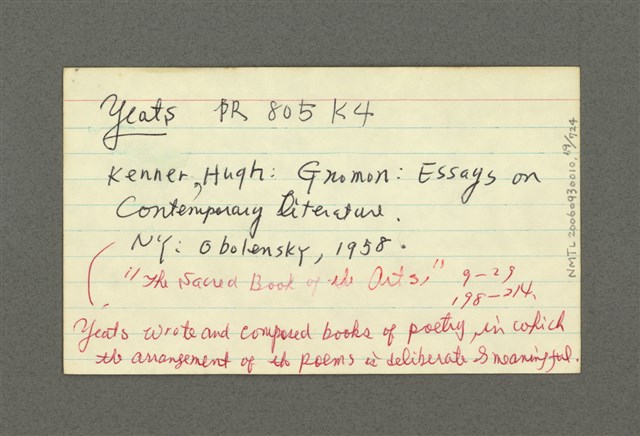 Yeats PR 805 K4
Kenner, Hugh: Gnomon: Essays on
Contemporary Literature.
NY: Obolensky, 1958.
"The Sacred Book of the Arts," 9-29
198-214.
Yeats wrote and composed books of poetry, in which
the arrangement of the poems is deliberate & meaningful.
NMTL 20060930010, 19/724